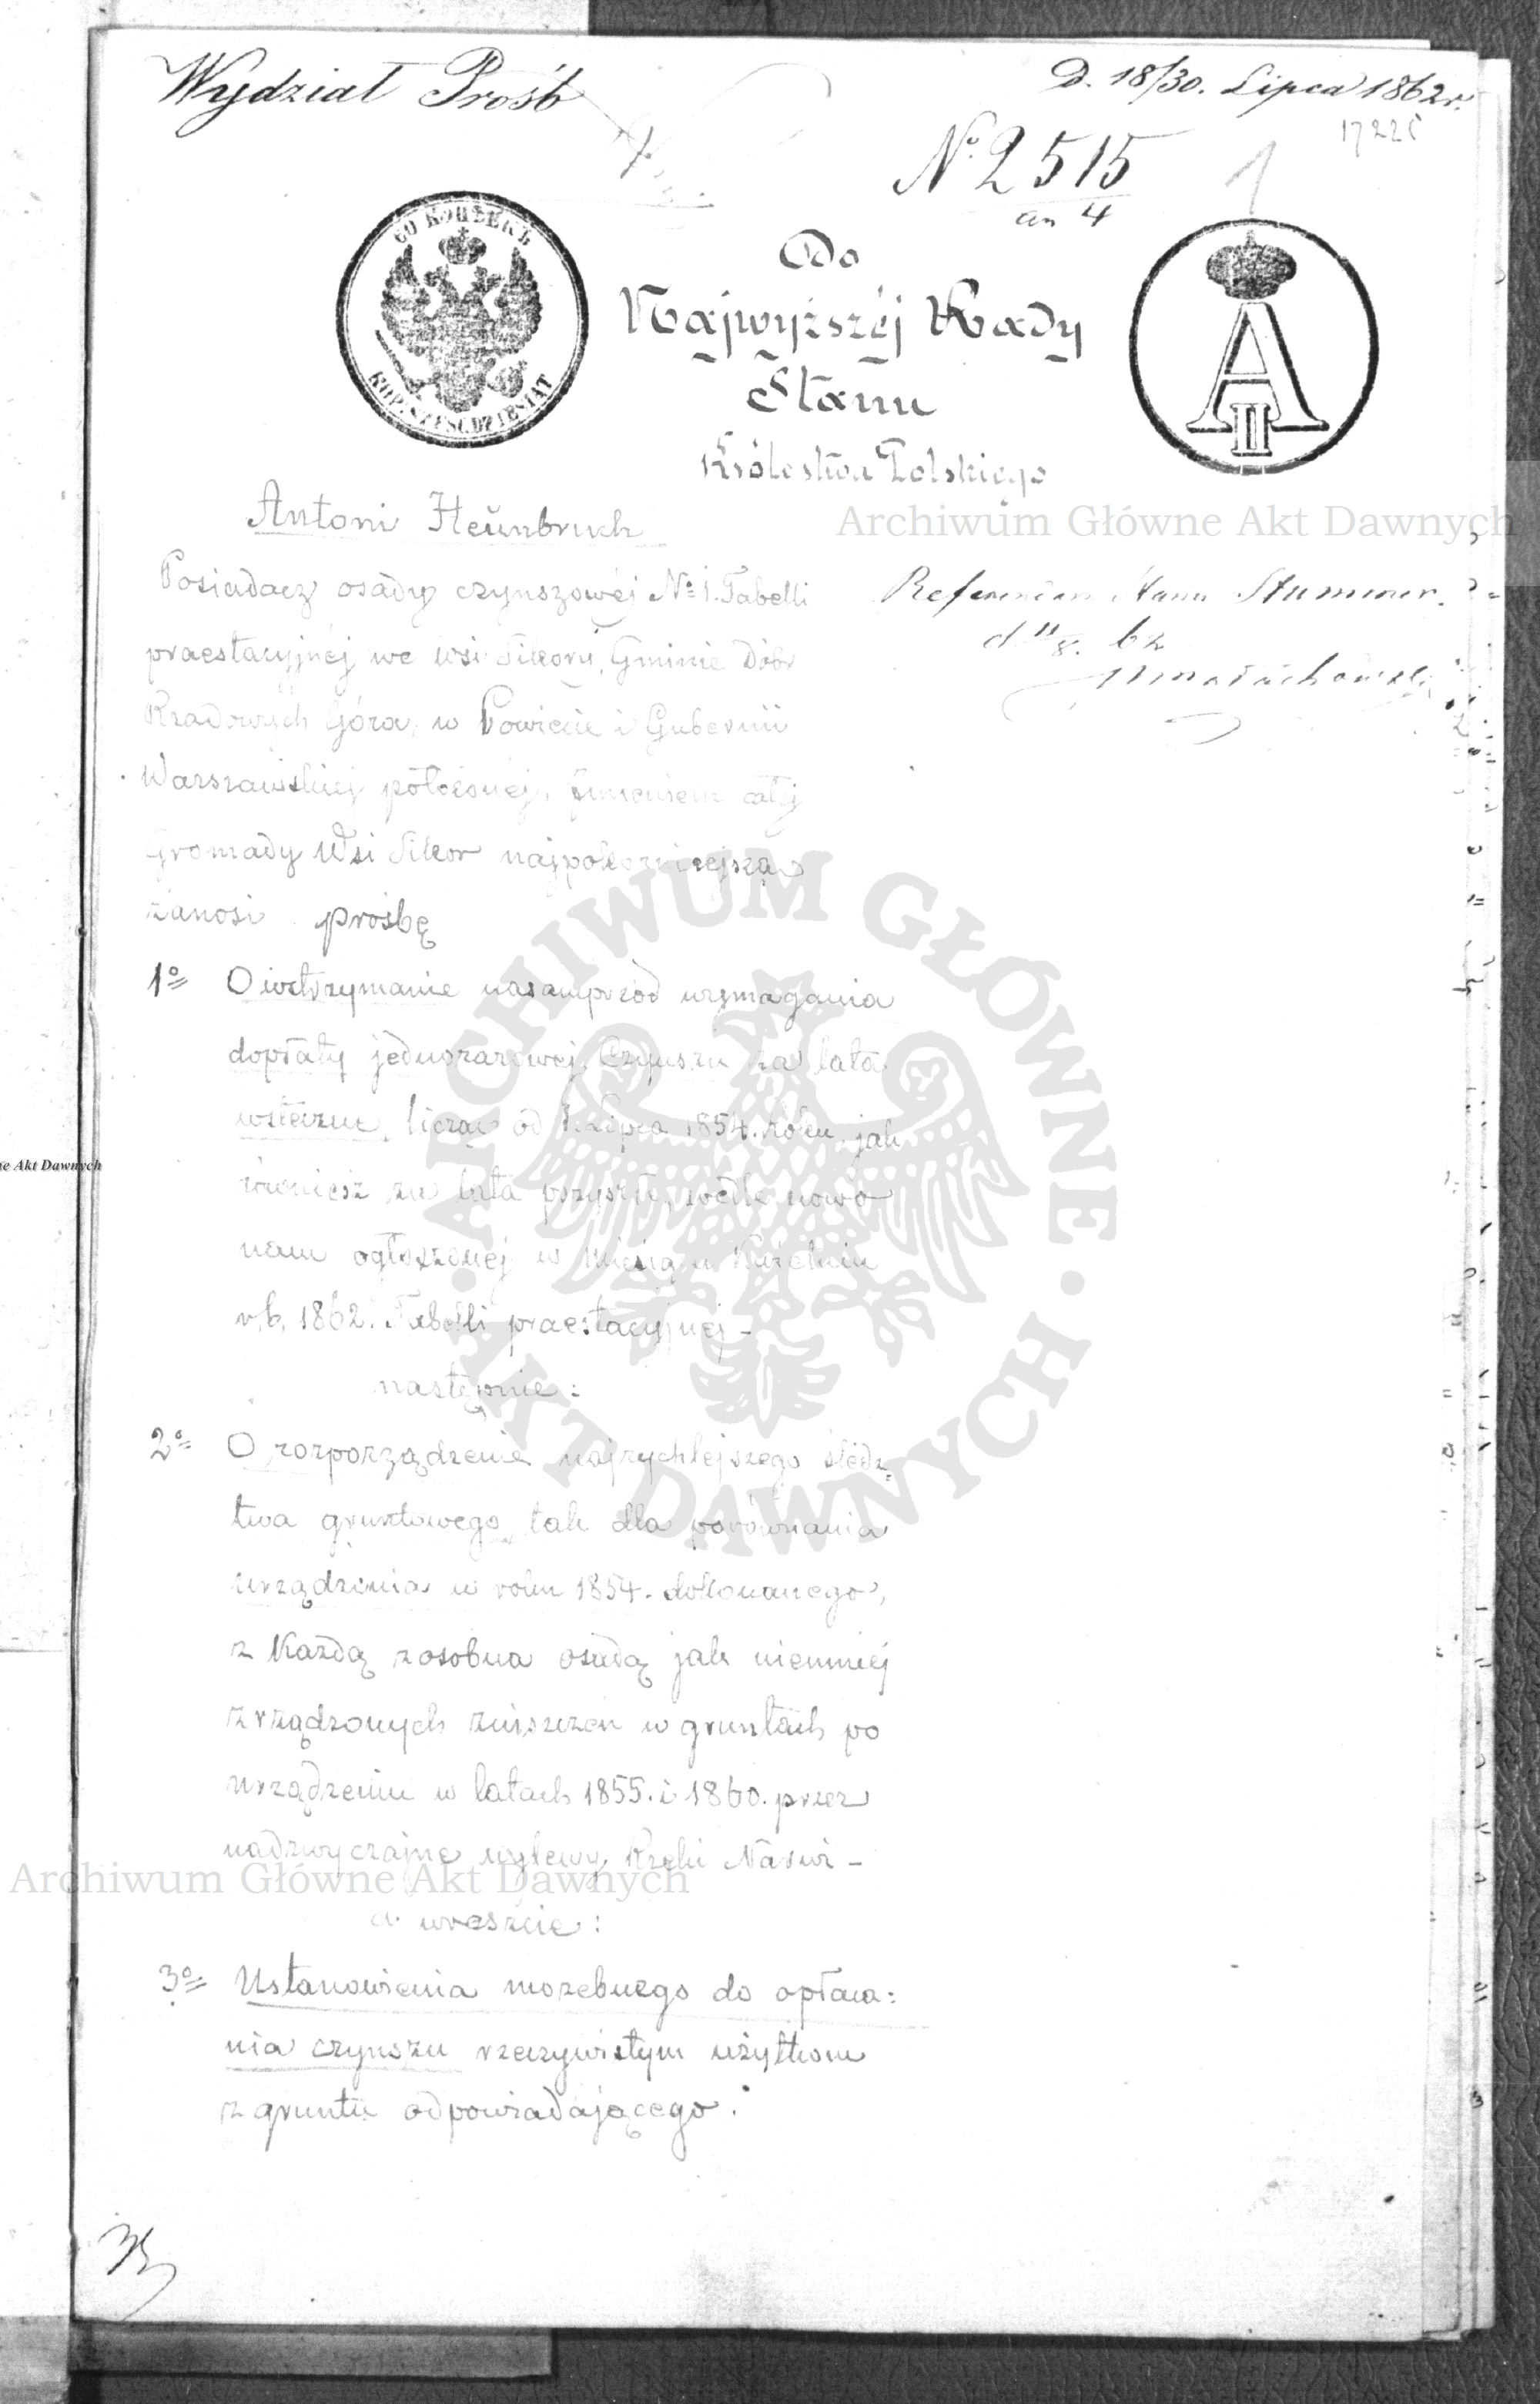 Wydział Próśb
D. 18/30. Lipca 1862 r.
No. 2515
an 4
1
60 КОПѢЕКЪ
KOP. SZEŚĆDZIESIĄT
A
II
Do
Najwyższéj Rady
Stanu
Królestwa Polskiego
Antoni Heünbruch
Archiwum Główne Akt Dawnych
Posiadacz osady czynszowéj No 1. Tabelli
praestacyjnéj we wsi Sikory, Gminie Dóbr
Rządowych Góra, w Powiecie i Gubernii
Warszawskiej położonej, imieniem całej
Gromady Wsi Sikor najpokorniejszą
zanosi prośbę
Referendarz Stanu Stummer.
d 11/8. 62
Małachowski
1o O wstrzymanie nasamprzód wymagania
dopłaty jednorazowej Czynszu za lata
wsteczne, licząc od 1. Lipca 1854. roku, jak
również za lata przyszłe, wedle nowo
nam ogłoszonej w Miesiącu Kwietniu
r. b. 1862. Tabelli praestacyjnej –
następnie:
2o O rozporządzenie najrychlejszego śledz=
twa gruntowego, tak dla porównania
urządzenia w roku 1854. dokonanego,
z Każdą zosobna osadą jak niemniej
zrządzonych zniszczeń w gruntach po
urządzeniu w latach 1855. i 1860. przez
nadzwyczajne wylewy Rzeki Narwi –
a wreszcie:
3o Ustanowienia możebnego do opłaca=
nia czynszu rzeczywistym użytkom
z gruntu odpowiadającego.
ARCHIWUM GŁÓWNE
AKT DAWNYCH
Archiwum Główne Akt Dawnych
e Akt Dawnych